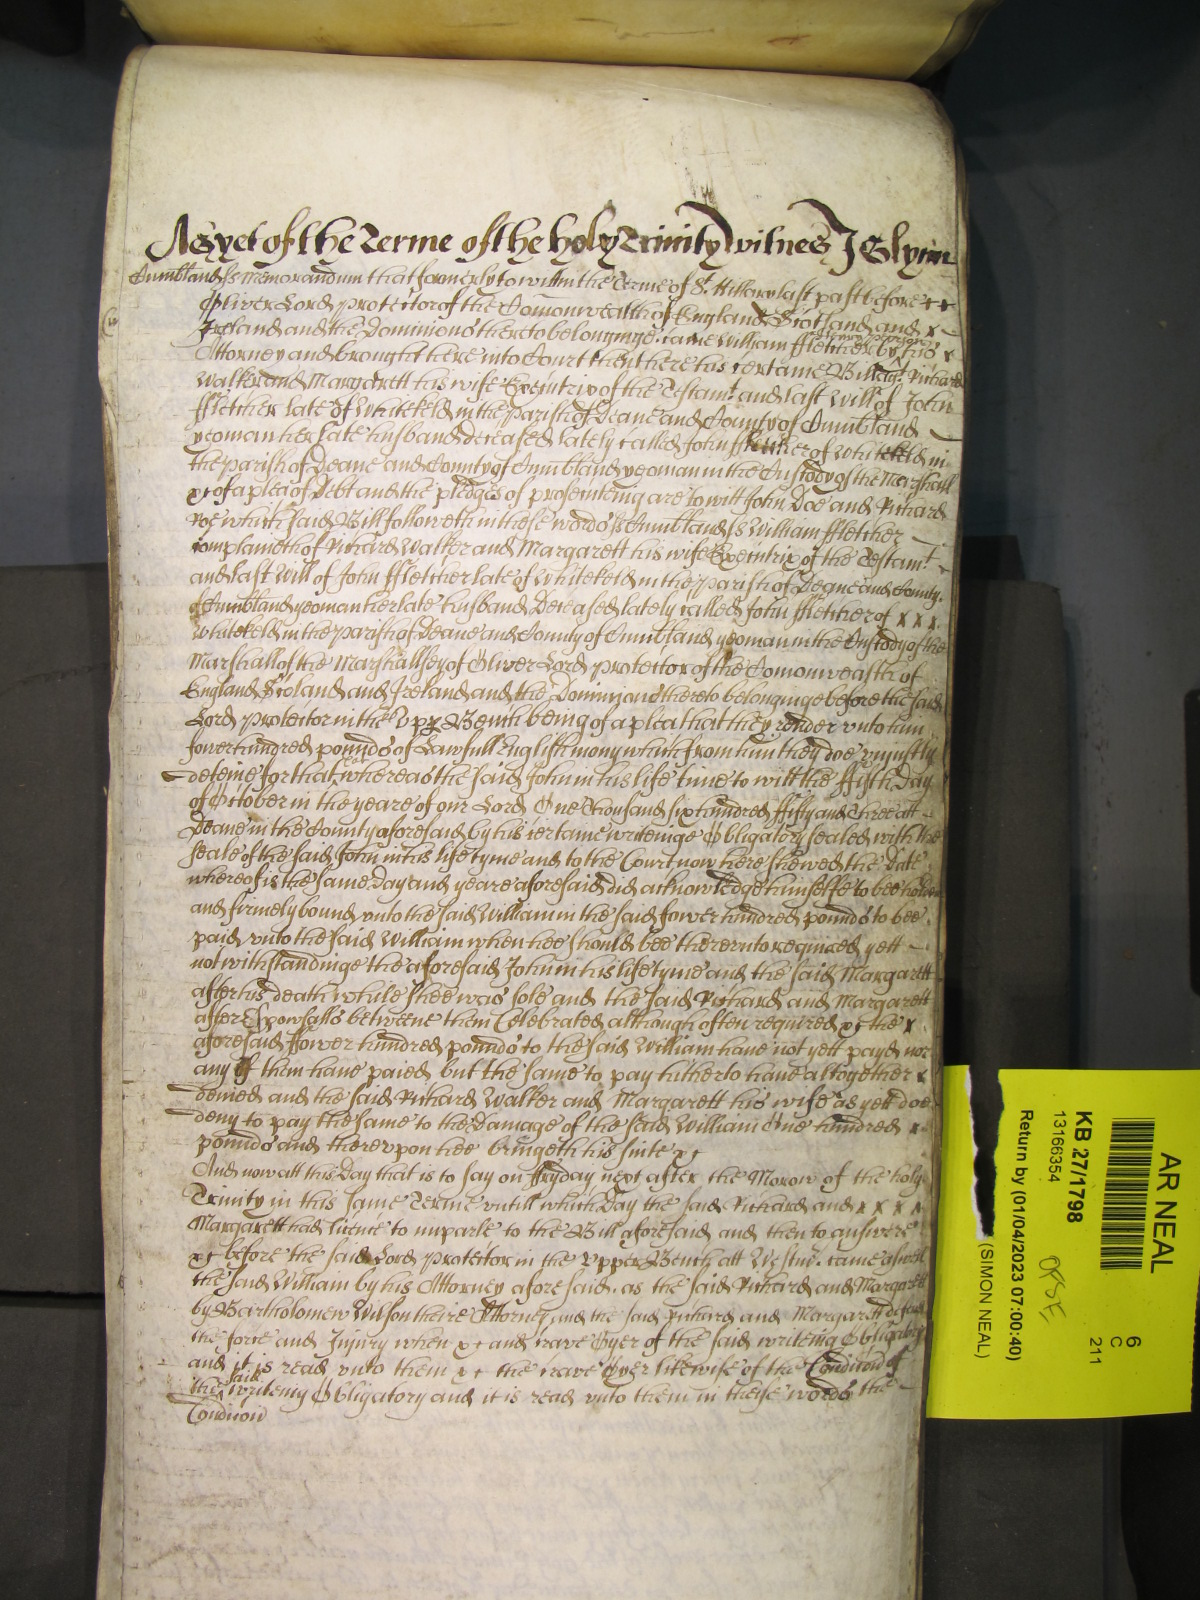 As yet of the Terme of the holy Trinity Witnes J Glynn
Cumbland ss Memorandum that formerly to witt in the Terme of St. Hillary last past before x x
Oliver Lord Protector of the Comonwealth of England Scotland and x
Ireland and the Dominions thereto belonginge came William ffletcher by his x
Attorney and brought here into Court then there his certaine Bill agt. Richard
Walker and Margarett his wife Executrix of the Testamt. and last Will of John
ffletcher late of Whitekeld in the parish of Deane and County of Cumbland
yeoman her late husband deceased lately called John ffletcher of Whitekeld in
the parish of Deane and County of Cumbland yeoman in the Custody of the Marshall
xc of a plea of Debt and the pledges of prosecuteing are to witt John Doe and Richard
Roe which said Bill followeth in these words ss Cumbland ss William ffletcher
complaineth of Richard Walker and Margarett his wife Executrix of the Testamt.
and last Will of John ffletcher late of Whitekeld in the parish of Deane and County
of Cumbland yeoman her late husband Deceased lately called John ffletcher of x x x
Whitekeld in the parish of Deane and County of Cumbland yeoman in the Custody of the
Marshall of the Marshallsey of Oliver Lord Protector of the Comonwealth of
England Scotland and Ireland and the Dominions thereto belonginge before the said
Lord Protector in the Vpp Bench being of a plea that they render vnto him
fower hundred pounds of Lawfull English mony which from him they doe vniustly
deteine for that whereas the said John in his life time to witt the ffifth Day
of October in the yeare of our Lord One Thousand six hundred ffifty and Three att
Deane in the County aforesaid by his certaine writeinge Obligatory sealed with the
seale of the said John in his life tyme and to the Court now here shewed the Date
whereof is the same Day and yeare aforesaid did acknowledge himselfe to bee holden
and firmely bound vnto the said William in the said fower hundred pounds to bee
paid vnto the said William when hee should bee therevnto required yett
notwithstandinge the aforesaid John in his life tyme and the said Margarett
after his death while shee was sole and the said Richard and Margarett
after Espowsalls betweene them Celebrated although often required xc the x
aforesaid ffower hundred pounds to the said William haue not yett payd nor
any of them haue paied but the same to pay hitherto haue altogether x
denied and the said Richard Walker and Margarett his wife as yett doe
deny to pay the same to the Damage of the said William One hundred x
pounds and therevpon hee bringeth his suite xc
And now att this Day that is to say on ffryday next after the Morow of the holy
Trinity in this same Terme vntill which Day the said Richard and x x x x
Margarett had licence to imparle to the Bill aforesaid and then to answere
xc before the said Lord Protector in the Vpper Bench att Westm. came aswell
the said William by his Attorney aforesaid as the said Richard and Margarett
by Bartholomew Wilson theire Attorney and the said Richard and Margarett defend
the force and Injury when xc and crave Oyer of the said writeing Obligatory
and it is read vnto them xc the crave Oyer likewise of the Condicion of
the said writeing Obligatory and it is read vnto them in theise words the
Condicion
AR NEAL
KB 27/1798
13166354
Return by (01/04/2023 07:00:40)
(SIMON NEAL)
6
C
211